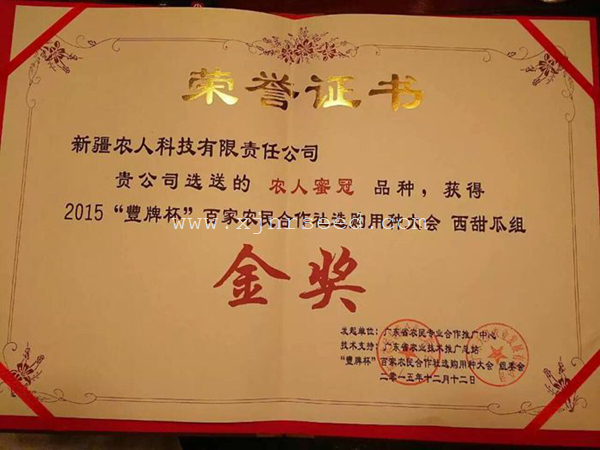 荣誉证书
新疆农人科技有限责任公司
贵公司选送的 农人蜜冠 品种，获得
2015“豐牌杯”百家农民合作社选购用种大会 西甜瓜组
金奖
发起单位：广东省农民专业合作推广中心
技术支持：广东省农业技术推广总站
“豐牌杯”百家农民合作社选购用种大会 组委会
二零一五年十二月十二日